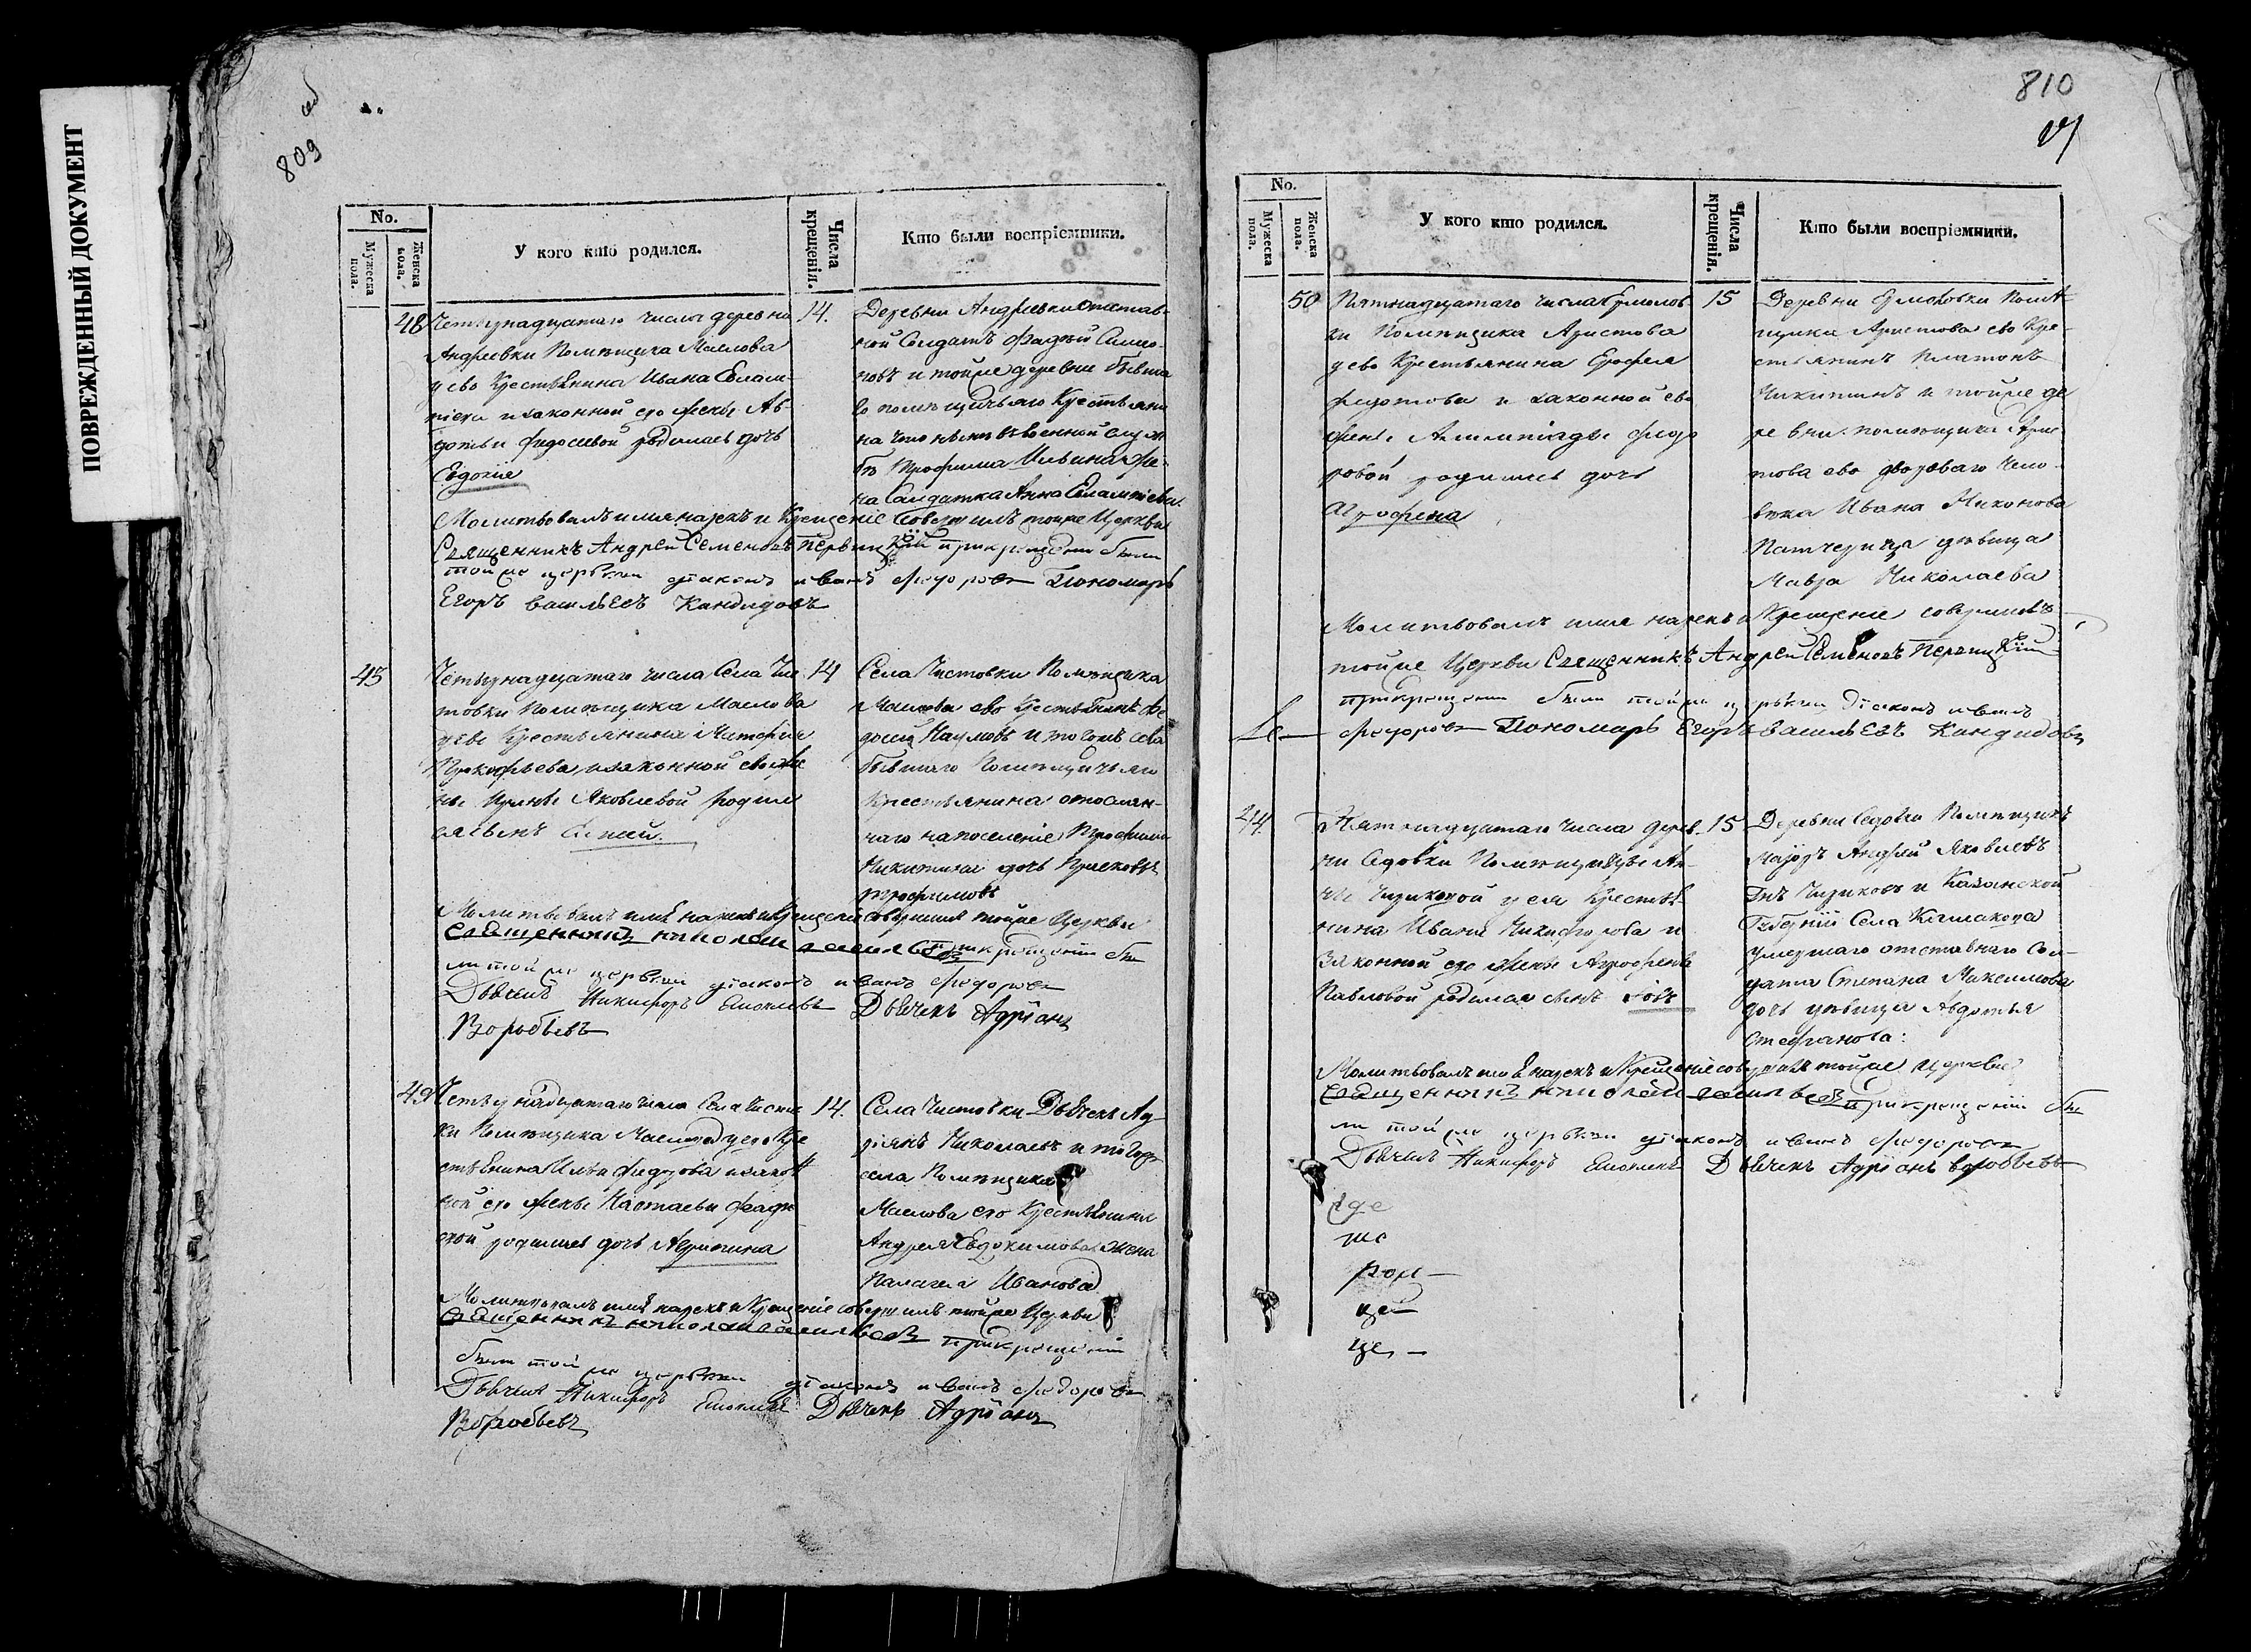 ПОВРЕЖДЕННЫЙ ДОКУМЕНТ
809
об
No.
Мужеска пола.
Женска пола.
У кого кто родился.
Числа крещенія.
Кто были воспріемники.
48
Четырнадцатаго числа деревни
Андреевки Помещика Маслова
у ево Крестьянина Ивана Евлам-
піева и законной его жены Ав-
дотьи Федосеевой родилась дочь
Евдокіе
14.
Деревни Андреевки Отстав-
ной Солдатъ Фадѣй Симо-
новъ и тойже деревни бывша
го помѣщичьяго Крестьяни
на что нынѣ в военной служ
бѣ Трофима Ильина же-
на Салдатка Анна Евлампіева.
Молитвовалъ имя нарекъ и Крещеніе Совершилъ тойже Церкви
Священникъ Андрей Семеновъ Первицкій при крещеніи были
той же церкви діаконъ иванъ Федоровъ Пономарь
Егоръ васильевъ Кандидовъ
45
Четырнадцатаго числа Села Чис
товки Помещика Маслова
у ево Крестьянина Матфея
Прокофьева, изаконной ево же
ны Ирины Яковлевой родил
ся сынъ
14
Села Чистовки Помѣщика
Маслова ево Крестьянинъ
Наумовъ и тогожъ села
бывшаго Помѣщичьяго
Крестьянина отослан-
наго на поселеніе Трофима
Никитина дочь
трофимова
Молитвовалъ имя нарекъ и Крещеніе совершилъ тойже Церкви
Священникъ николай васильевъ при крещеніи бы
ли той же церкви діаконъ иванъ Федоровъ
Дьячекъ Никифоръ Дьячекъ Адріанъ
Воробьевъ
49
Четырнадцатаго числа Села Чистов
ки Помѣщика Маслова у его Кре
стьянина Ильи Федорова изакон
ной его жены Настасьи
родилась дочь
14.
Села Чистовки Дьячекъ Ад-
ріянъ Николаевъ и тогожъ
села Помѣщика
Маслова его Крестьянина
Андрея Евдокимова жена
Палагея Иванова
Молитвовалъ имя нарекъ и Крещеніе совершилъ тойже Церкви
Священникъ николай васильевъ при крещеніи
были той же церкви діаконъ иванъ Федоровъ
Дьячекъ Никифоръ Дьячекъ Адріанъ
Воробьевъ
810
No.
Мужеска пола.
Женска пола.
У кого кто родился.
Числа крещенія.
Кто были воспріемники.
50
Пятнадцатаго числа Ермолов
ки Помѣщика Аристова
у ево Крестьянина Ерофея
Федотова и законной ево
жены Алимпіады Федо
ровой родилась дочь
Агрофена
15
Деревни Ермоловки Помѣ-
щика Аристова ево Кре-
стьянинъ Платонъ
Никитинъ и тойже де
ревни помѣщика Арис
това ево двороваго чело-
века Ивана Никонова
Патчерица девица
Мавра Николаева
Молитвовалъ имя нарекъ и Крещеніе совершилъ
тойже Церкви Священникъ Андрей Семеновъ Первицкій
при крещеніи были тойже церкви діаконъ иванъ
Федоровъ Пономарь Егоръ васильевъ Кандидовъ
44.
Пятнадцатаго числа дерев-
ни Седовки Помѣщицы Ан-
ны Чириковой у ея Крестья
нина Ивана Никифорова и
законной его жены Агрофены
Павловой родился сынъ Іовъ
15
Деревни Седовки Помѣщикъ
Маіоръ Андрей Яковлевъ
Гнъ Чириковъ и Казанской
Губерніи Села
умершаго отставнаго Сол-
дата Степана Максимова
дочь девица Авдотья
Стефанова:
Молитвовалъ имя нарекъ и Крещеніе совершилъ тойже Церкви
Священникъ николай васильевъ при крещеніи бы
ли той же церкви діаконъ иванъ Федоровъ
Дьячекъ Никифоръ Дьячекъ Адріанъ воробьевъ